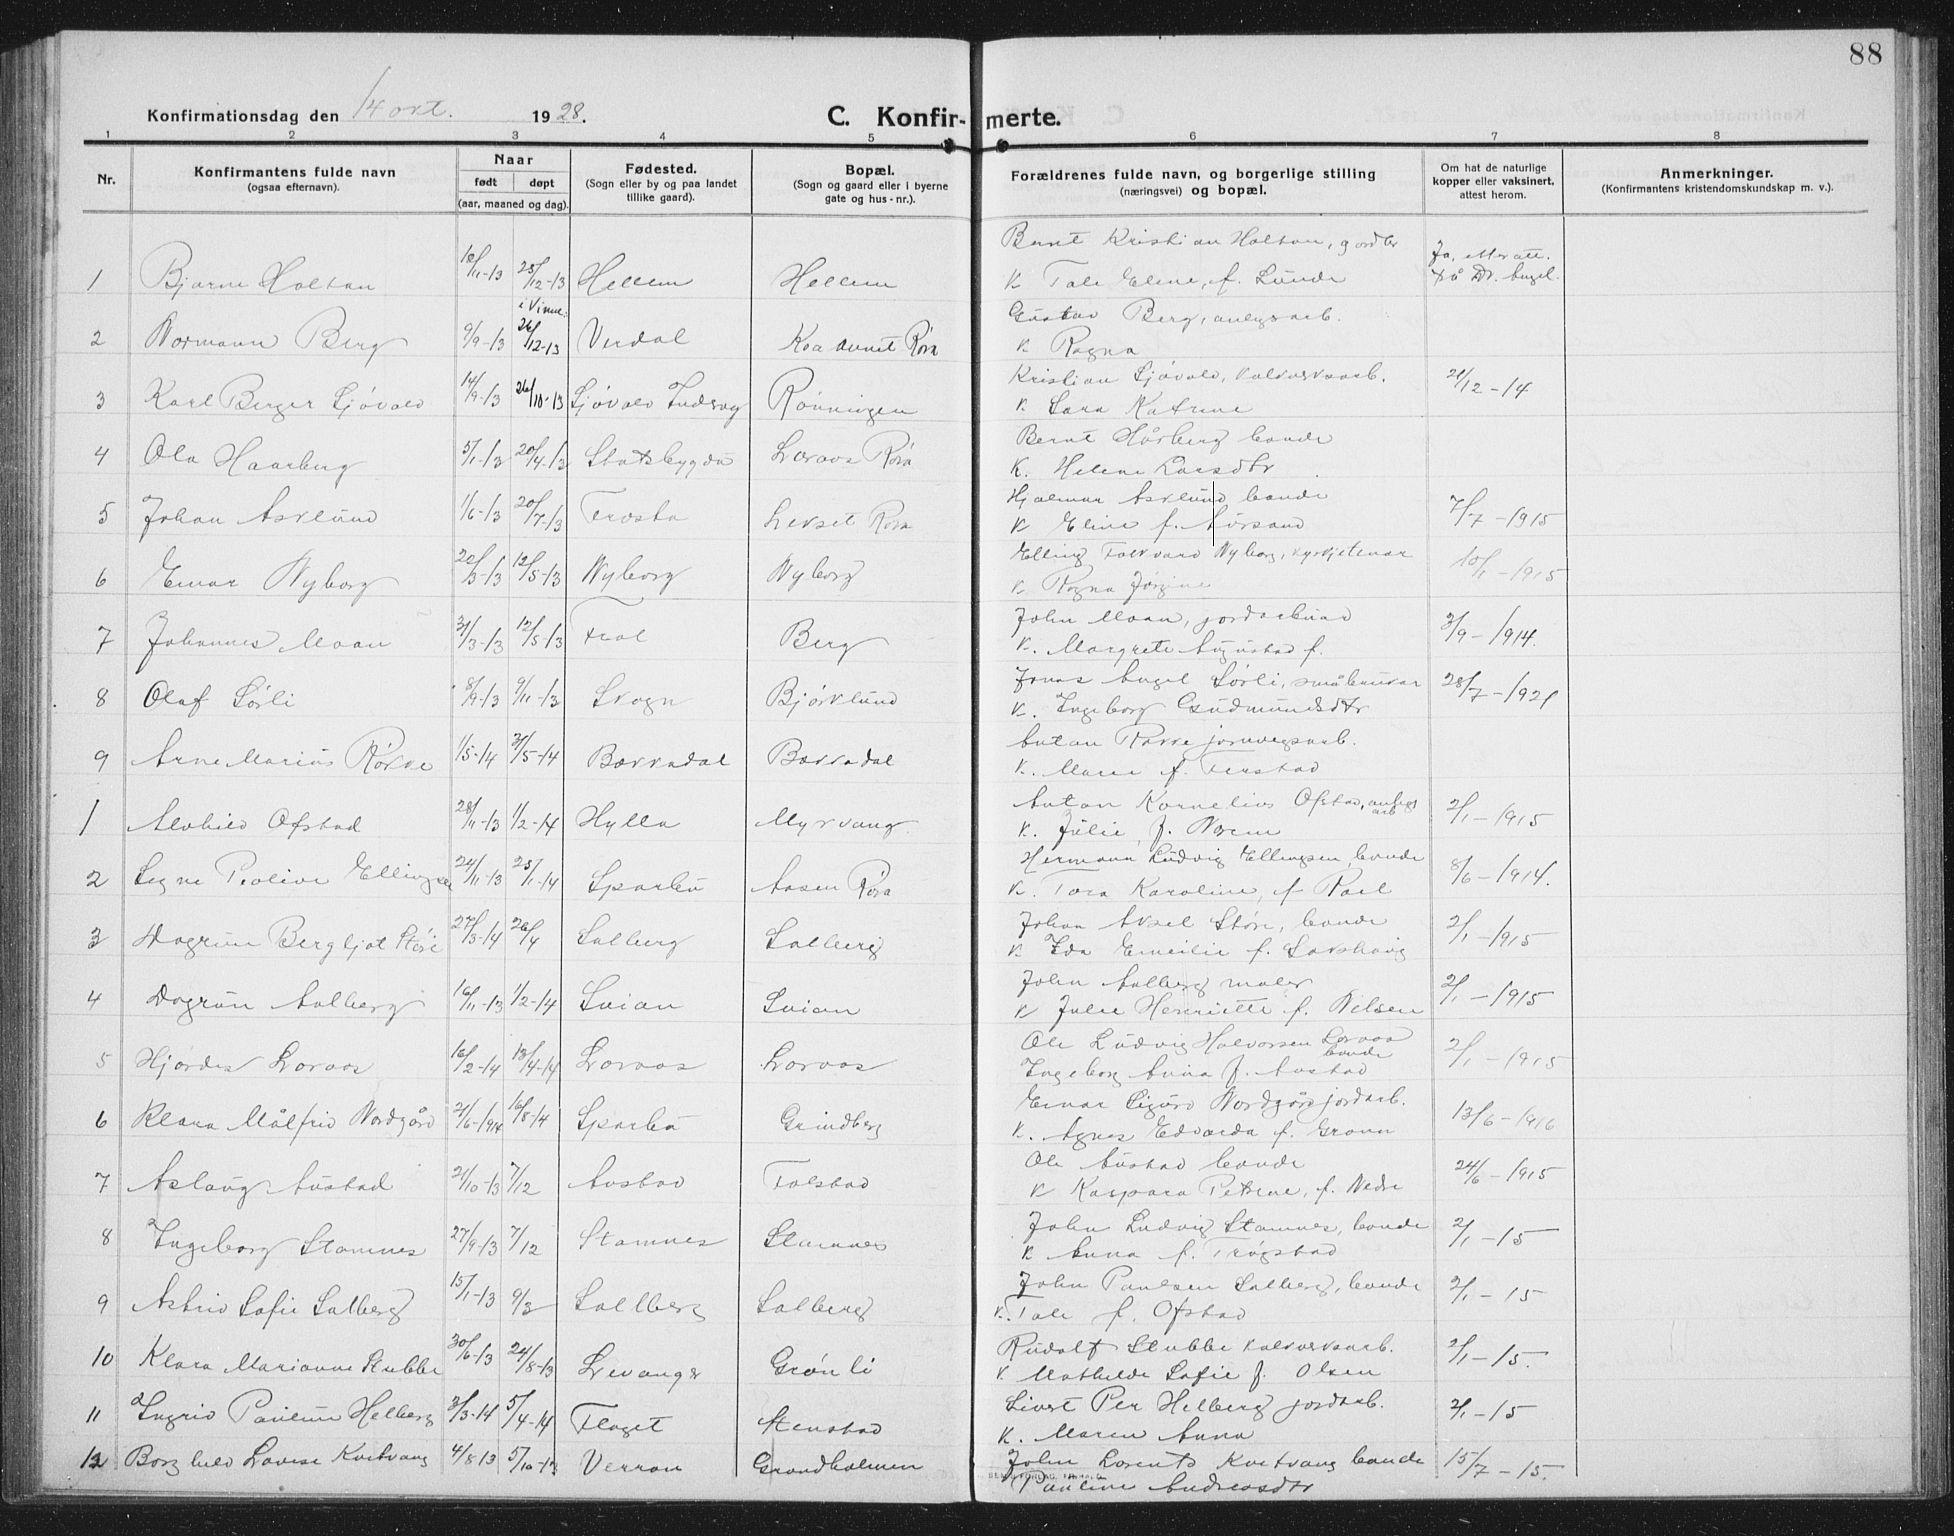 88
Konfirmationsdag den 14 okt. 1928.
C. Konfirmerte.
1 2 3 4 5 6 7 8
Nr.
Konfirmantens fulde navn
(ogsaa efternavn).
Naar
født døpt
(aar, maaned og dag).
Fødested.
(Sogn eller by og paa landet
tillike gaard).
Bopæl.
(Sogn og gaard eller i byerne
gate og hus-nr.).
Forældrenes fulde navn, og borgerlige stilling
(næringsvei) og bopæl.
Om hat de naturlige
kopper eller vaksinert,
attest herom.
Anmerkninger.
(Konfirmantens kristendomskundskap m. v.).
Bernt Kristian Holtan, gardbr
1 Bjarne Holtan 18/11-13 25/12-13 Hellem Hellem
K Tale Elene, f. Lunde
Ja, etter att.
på Dr. Angel.
i Vinne:
Gustav Berg, anlegsarb.
2 Normann Berg 9/9-13 26/12-13 Verdal Røra
K Ragna
3 Karl Berger Sjøvold 14/9-13 26/10-13 Sjøvold Inderøy Rønningen
Kristian Sjøvold, kalkverksarb. 21/12-14
K. Sara Katrine
4 Ola Haarberg 5/1-13 20/4-13 Statsbygda Lorvos Røra
Bernt Hårberg bonde
K. Helene Larsdtr
5 Johan Asklund 1/6-13 20/7-13 Frosta Levset Røra
Hjalmar Asklund bonde 7/7-1915
K Eline f. Aursand
6 Einar Nyborg 22/3-13 12/5-13 Nyborg Nyborg
Elling Folkvard Nyborg, kyrkjetenar 10/1-1915
K Ragna Jørgine
7 Johannes Moan 31/3-13 12/5-13 Frol Berg
John Moan, jordarbeidar 3/9-1914.
K. Margrete Augustad f.
8 Olaf Sørli 8/9-13 9/11-13 Skogn Bjørklund
Jonas Angel Sørli, småbrukar 28/7-1921
K. Ingeborg Gudmundsdtr
9 Arne Marius Røkke 1/5-14 31/5-14 Bakkadal Bakkadal
Anton Røkke jernvegsarb.
K. Maren f. Ferstad
1 Alvhild Ofstad 28/11-13 1/2-14 Hylla Myrvang
Anton Kornelius Ofstad, anlegs
arb 2/1-1915
K. Julie, f. Norum
2 Signe Peolive Ellingsen 24/11-13 25/1-14 Sparbu Aasen Røra
Hermann Ludvig Ellingsen, bonde 8/6-1914.
K. Tora Karoline, f Roel
3 Dagrun Bergljot Støre 27/3-14 26/4 Salberg Salberg
Johan Aksel Støre, bonde 2/1-1915
K Ida Emilie f. Saxhaug
4 Dagrun Aalberg 16/11-13 1/2-14 Svian Svian
John Aalberg maler 2/1-1915
K Julie Henriette f. Nilsen
5 Hjørdis Lorvos 16/2-14 13/4-14 Lorvos Lorvos
Ole Ludvig Halvorsen Lorvos
bonde 2/1-1915
Ingeborg Anna f. Austad
6 Klara Målfrid Nordgård 21/6-1914 16/8-14 Sparbu Grindberg
Einar Sigurd Nordgård jordarb. 13/6-1916
K. Agnes Edvarda f. Grønn
7 Aslaug Austad 21/10-13 7/12 Austad Folstad
Ole Austad bonde 24/6-1915
K Kaspara Petrine, f. Nedre
8 Ingeborg Stamnes 27/9-13 7/12 Stamnes Stamnes
John Ludvig Stamnes, bonde 2/1-15
K Anna f. Trøgstad
9 Astrid Sofie Salberg 15/1-13 9/3 Sallberg Salberg
John Paulsen Salberg, bonde 2/1-15
K. Tale f. Ofstad
10 Klara Marianne Stubbe 30/6-13 24/8-13 Levanger Grønli
Rudolf Stubbe kalkverksarb. 2/1-15.
K Mathilde Sofie f. Olsen
11 Ingrid Pauline Helberg 3/3-14 5/4-14 Flaget Stenstad
Sivert Per Helberg jordarb. 2/1-15
K. Maren Anna
12 Borghild Lovise Kvetvang 4/8-13 5/10-13 Verran Grandholmen
John Lorents Kvetvang bonde 15/7-15.
K Pauline Andreasdtr